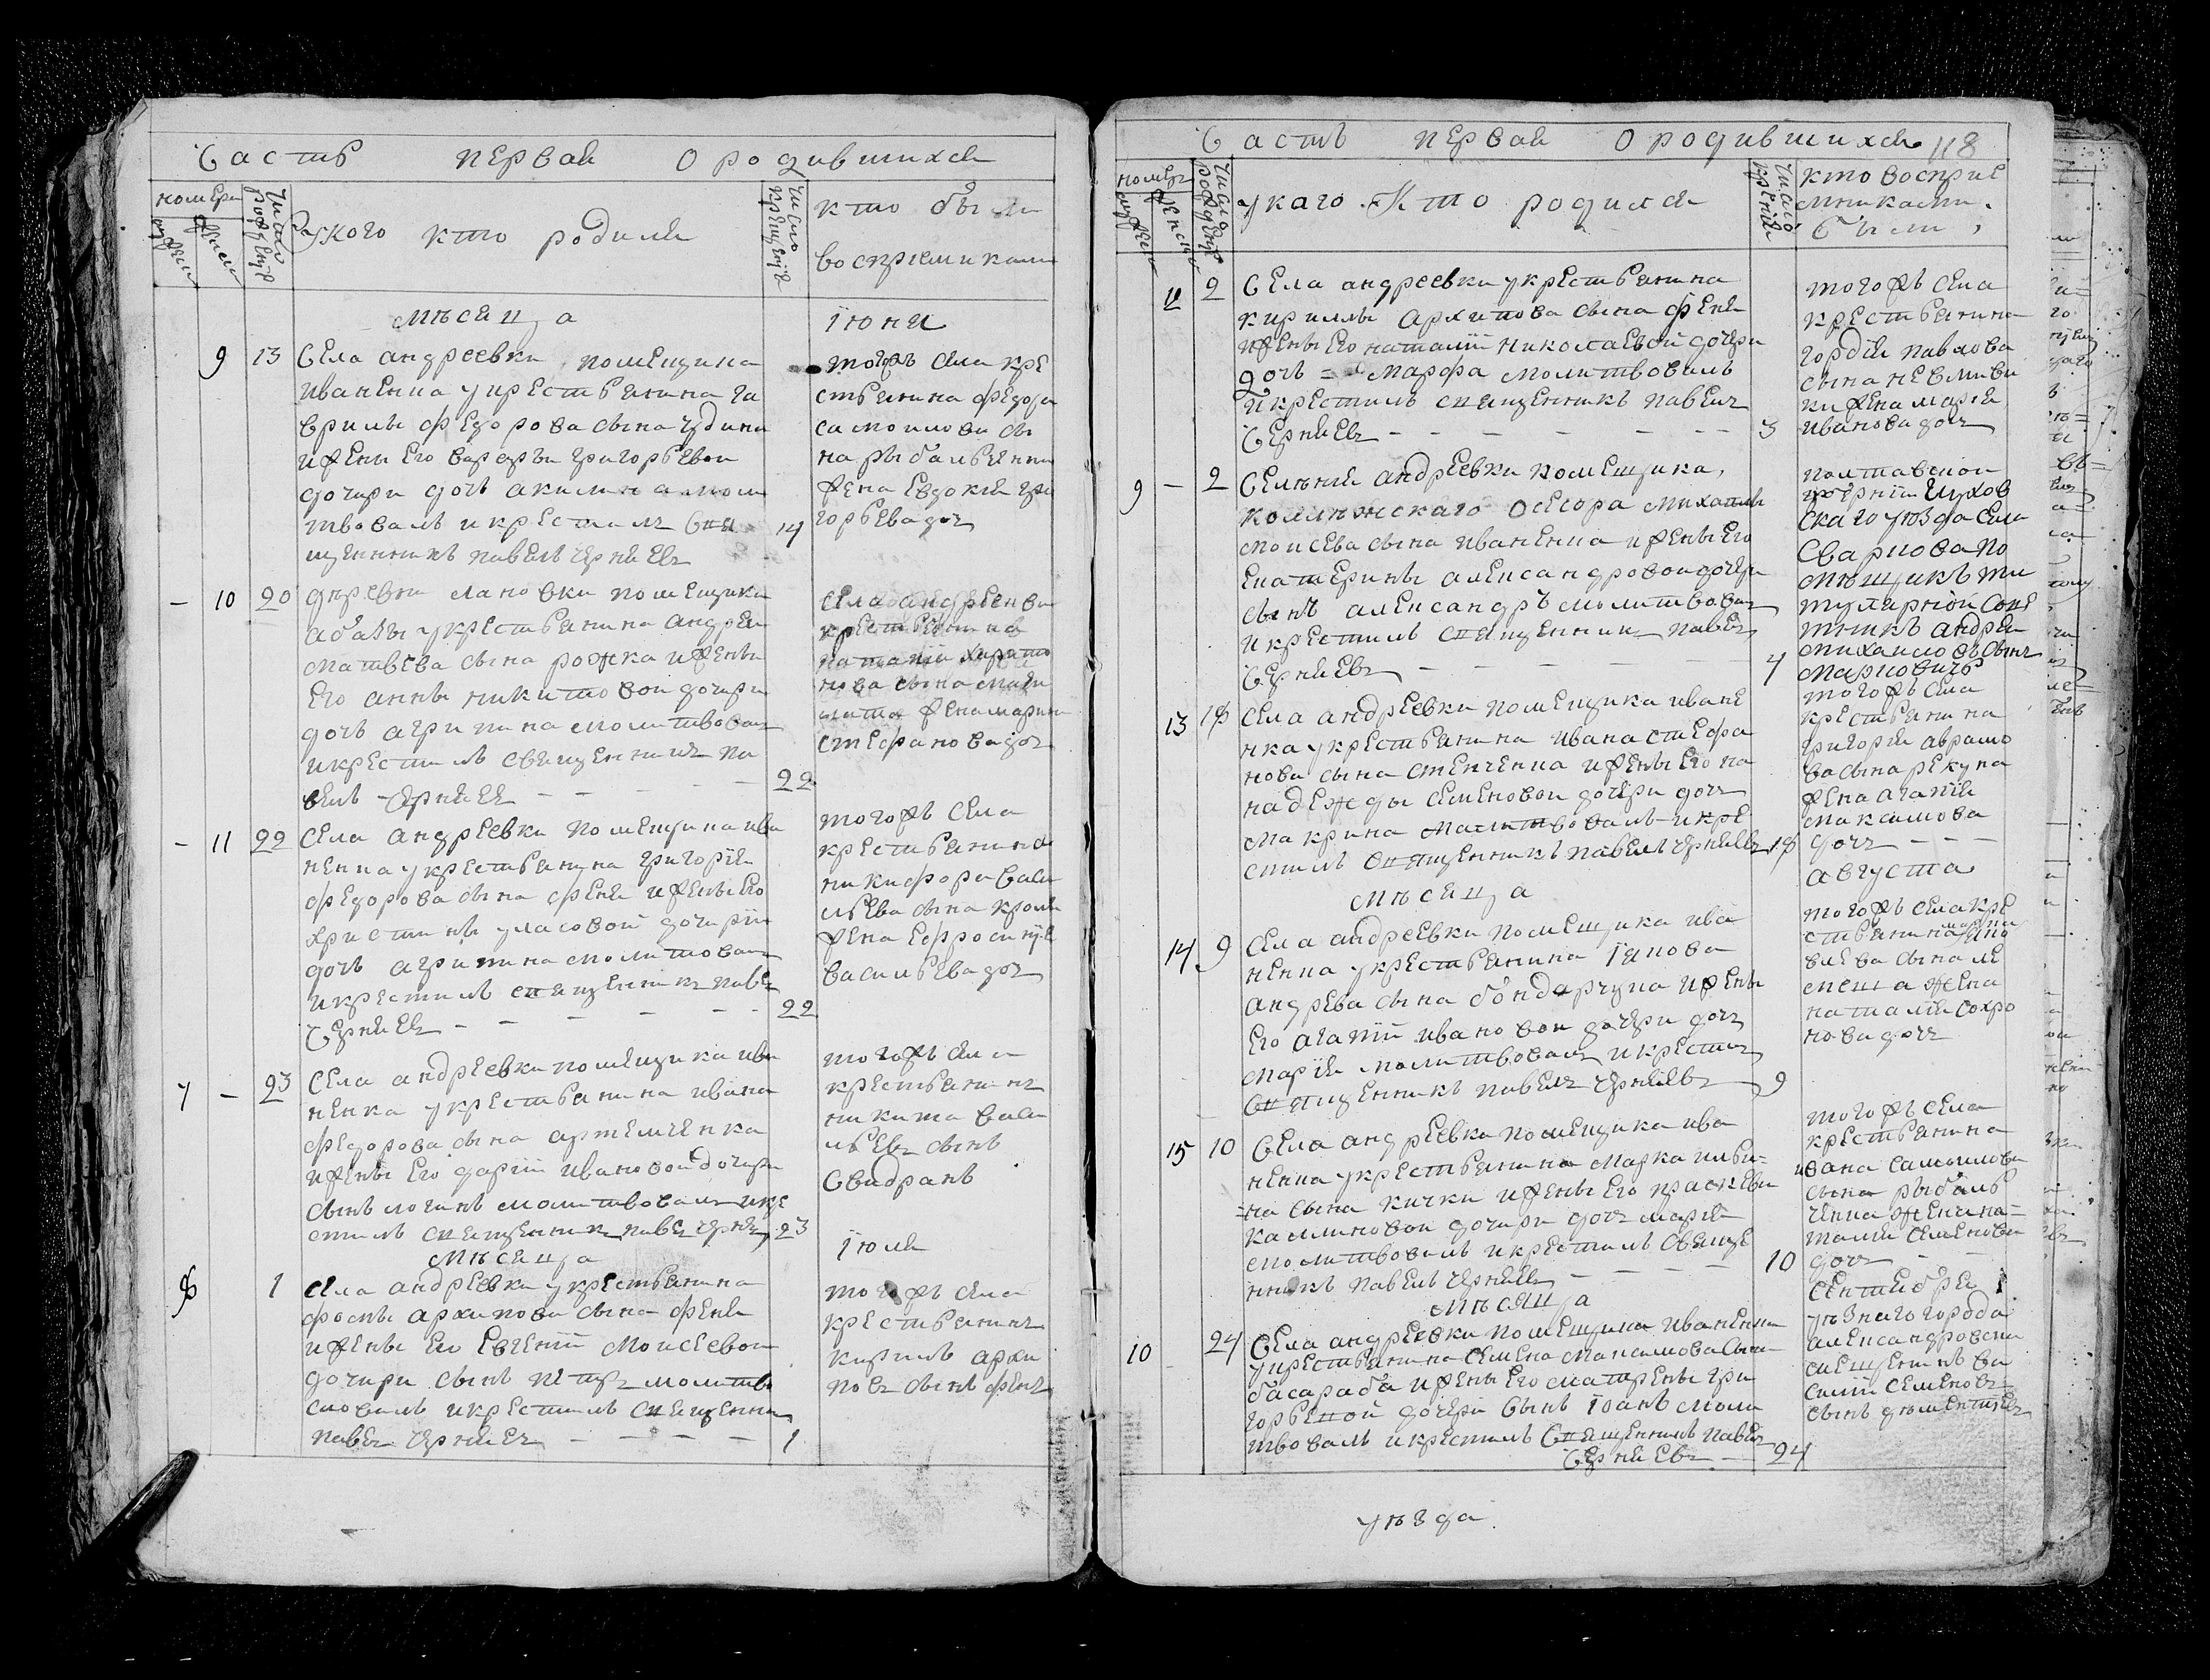 Часть первая о родившихся
номеры
мужеск
женск
Число рождения
Укого кто родился
Число крещения
кто были
восприемниками
мѣсяца
iюня
9 13 Села андреевки помещика
иваненка укрестьянина га
врилы федорова сына
ижены его варвары григорьевой
дочери дочь акилина молит
твовалъ икрестилъ свя
щенникъ павелъ черняевъ
14
тогожъ села кре
стьянина федора
самоилова сы
на рыбальченка
жена евдокия гри
горьева дочь
- 10 20 деревни лановки помещика
абазы укрестьянина андрея
матвѣева сына рожка ижены
его анны никитовой дочери
дочь агрипина молитвовалъ
икрестилъ священникъ па
велъ черняевъ - - - -
22
села андреевки
крестьянина
нова сына
жена марина
стефанова дочь
- 11 22 Села андреевки помещика ива
ненка укрестьянина григорiя
федорова сына феня ижены его
христины уласовой дочери
дочь агрипина молитвовалъ
икрестилъ священникъ павелъ
черняевъ - - - - - -
22
тогожъ села
крестьянина
никифора васи
льева сына
жена ефросинiя
васильева дочь
7 - 23 Села андреевки помещика ива
ненка укрестьянина ивана
федорова сына артемченка
ижены его дарiи ивановой дочери
сынъ логинъ молитвовалъ икре
стилъ священникъ павелъ черняевъ
23
тогожъ села
крестьянинъ
никита васи
льевъ сынъ
Свидранъ
мѣсяца
iюля
8 1 Села андреевки укрестьянина
фомы архипова сына феня
ижены его евгенiи моисеевой
дочери сынъ петръ молитво
словилъ икрестилъ священникъ
павелъ черняевъ - - - -
1
тогожъ села
крестьянинъ
кирилъ архи
повъ сынъ фень
Часть первая о родившихся 118
номеръ
мужеска
женска
Число рожденiя
укого кто родился
Число крещенiя
кто восприе
мниками
были
12 2 Села андреевки укрестьянина
кириллы архипова сына феня
ижены его наталiи николаевой дочери
дочь = марфа молитвовалъ
икрестилъ священникъ павелъ
Черняевъ - - - - - -
3
тогожъ села
крестьянина
гордiя павлова
сына
жена марiя
иванова дочь
9 - 2 Селѣнiя андреевки помещика,
колѣжскаго осесора михаила
моисеева сына иваненка ижены его
екатерины александровой дочери
сынъ александръ молитвовалъ
икрестилъ священникъ павелъ
Черняевъ - - - - - -
4
полтавской
губернiи глухов
скаго уѣзда села
Сваркова по
мѣщикъ ти
тулярной сове
тникъ андрей
михаиловъ сынъ
марковичъ
13 18 Села андреевки помещика иване
нка укрестьянина ивана стефа
нова сына степченка ижены его на
надежды семеновой дочери дочь
макрина молитвовалъ икре
стилъ священникъ павелъ черняевъ
18
тогожъ села
крестьянина
григорiя аврамо
ва сына рекуна
жена агапiя
максимова
дочь - - -
мѣсяца
августа
14 9 Села андреевки помещика ива
ненка укрестьянина iакова
андреева сына бондарчука ижены
его агапiи ивановой дочери дочь
марiя молитвовалъ икрестилъ
священникъ павелъ черняевъ
9
тогожъ села кре
стьянина
влева сына ле
жена
наталiя софро
нова дочь
15 10 Села андреевки помещика ива
ненка укрестьянина марка
на сына кички ижены его праскевы
калиновой дочери дочь марiя
молитвовалъ икрестилъ свяще
нникъ павелъ черняевъ - - - -
10
тогожъ села
крестьянина
ивана самоилова
сына рыбаль
ченка жена на=
талiя семенова
дочь - - -
мѣсяца
сентября
10 24 Села андреевки помещика иваненка
укрестьянина семена максимова сына
басараба ижены его матрены гри
горьевой дочери сынъ iоанъ моли
твовалъ икрестилъ священникъ павелъ
Черняевъ -
24
уѣзнаго города
александровска
ва
силiй семеновъ
сынъ
уѣзда